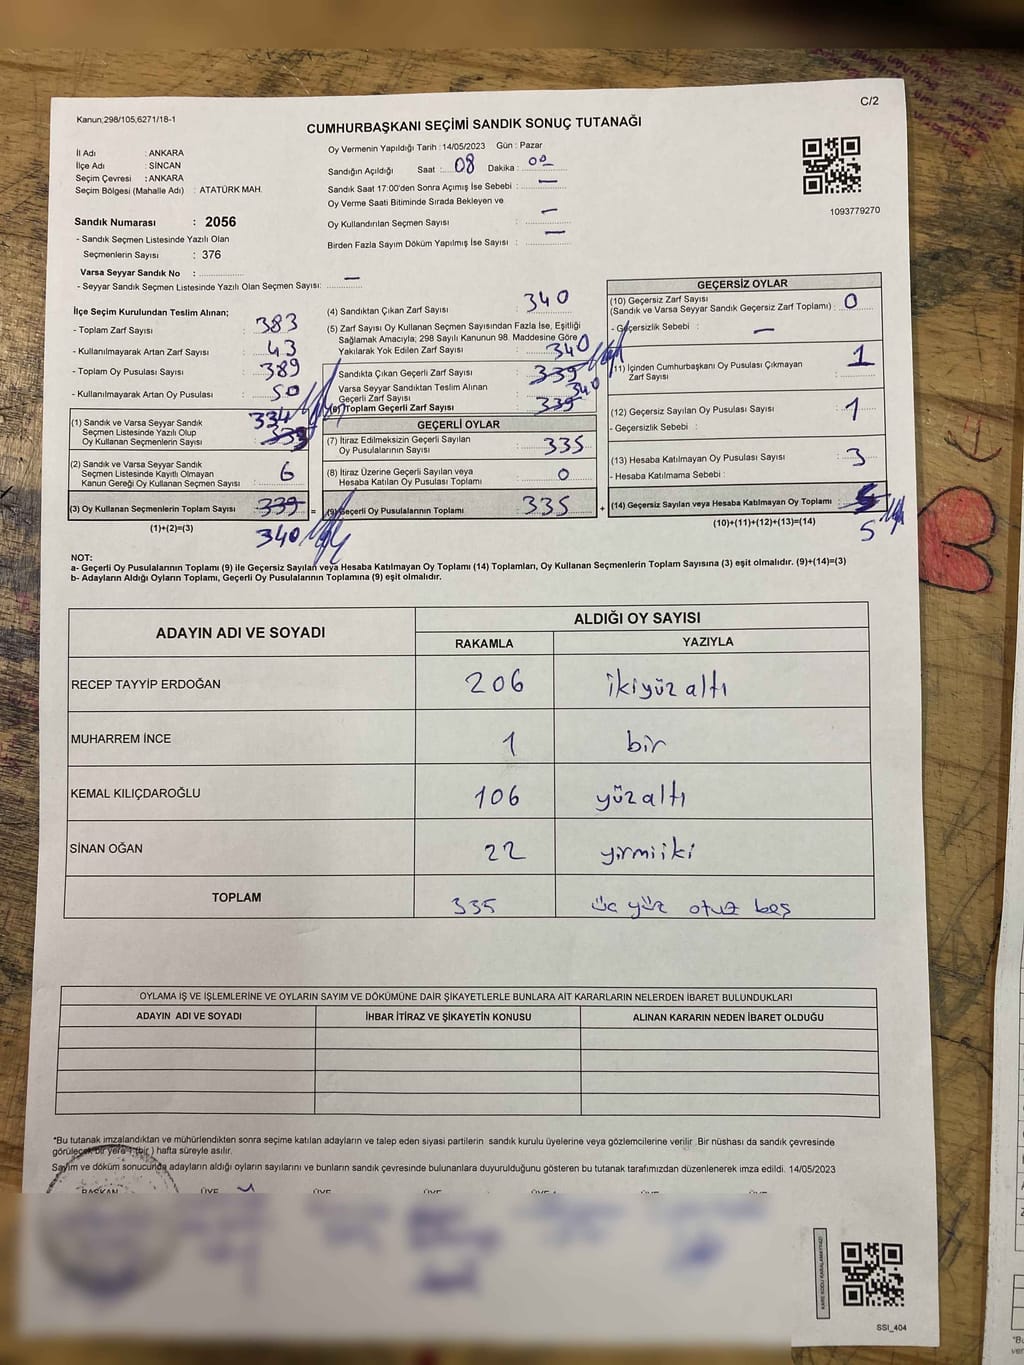 C/2
Kanun;298/105;6271/18-1
CUMHURBAŞKANI SEÇİMİ SANDIK SONUÇ TUTANAĞI
İl Adı : ANKARA
İlçe Adı : SİNCAN
Seçim Çevresi : ANKARA
Seçim Bölgesi (Mahalle Adı) : ATATÜRK MAH.
Sandık Numarası : 2056
- Sandık Seçmen Listesinde Yazılı Olan
Seçmenlerin Sayısı : 376
Varsa Seyyar Sandık No :
- Seyyar Sandık Seçmen Listesinde Yazılı Olan Seçmen Sayısı: —
Oy Vermenin Yapıldığı Tarih : 14/05/2023 Gün : Pazar
Sandığın Açıldığı Saat : 08 Dakika : 00
Sandık Saat 17:00'den Sonra Açımış İse Sebebi : —
Oy Verme Saati Bitiminde Sırada Bekleyen ve
Oy Kullandırılan Seçmen Sayısı : —
Birden Fazla Sayım Döküm Yapılmış İse Sayısı : —
1093779270
İlçe Seçim Kurulundan Teslim Alınan;
- Toplam Zarf Sayısı : 383
- Kullanılmayarak Artan Zarf Sayısı : 43
- Toplam Oy Pusulası Sayısı : 389
- Kullanılmayarak Artan Oy Pusulası : 50
334
(1) Sandık ve Varsa Seyyar Sandık
Seçmen Listesinde Yazılı Olup
Oy Kullanan Seçmenlerin Sayısı : 333
(2) Sandık ve Varsa Seyyar Sandık
Seçmen Listesinde Kayıtlı Olmayan
Kanun Gereği Oy Kullanan Seçmen Sayısı : 6
(3) Oy Kullanan Seçmenlerin Toplam Sayısı : 339 =
(1)+(2)=(3)
340
(4) Sandıktan Çıkan Zarf Sayısı : 340
(5) Zarf Sayısı Oy Kullanan Seçmen Sayısından Fazla İse, Eşitliği
Sağlamak Amacıyla; 298 Sayılı Kanunun 98. Maddesine Göre
Yakılarak Yok Edilen Zarf Sayısı :
340
Sandıkta Çıkan Geçerli Zarf Sayısı : 339
Varsa Seyyar Sandıktan Teslim Alınan
Geçerli Zarf Sayısı :
340
(6) Toplam Geçerli Zarf Sayısı : 339
GEÇERLİ OYLAR
(7) İtiraz Edilmeksizin Geçerli Sayılan
Oy Pusulalarının Sayısı : 335
(8) İtiraz Üzerine Geçerli Sayılan veya
Hesaba Katılan Oy Pusulası Toplamı : 0
(9) Geçerli Oy Pusulalarının Toplamı : 335 +
GEÇERSİZ OYLAR
(10) Geçersiz Zarf Sayısı
(Sandık ve Varsa Seyyar Sandık Geçersiz Zarf Toplamı) : 0
- Geçersizlik Sebebi : —
(11) İçinden Cumhurbaşkanı Oy Pusulası Çıkmayan
Zarf Sayısı : 1
(12) Geçersiz Sayılan Oy Pusulası Sayısı : 1
- Geçersizlik Sebebi :
(13) Hesaba Katılmayan Oy Pusulası Sayısı : 3
- Hesaba Katılmama Sebebi :
(14) Geçersiz Sayılan veya Hesaba Katılmayan Oy Toplamı :
5
(10)+(11)+(12)+(13)=(14)
NOT:
a- Geçerli Oy Pusulalarının Toplamı (9) ile Geçersiz Sayılan veya Hesaba Katılmayan Oy Toplamı (14) Toplamları, Oy Kullanan Seçmenlerin Toplam Sayısına (3) eşit olmalıdır. (9)+(14)=(3)
b- Adayların Aldığı Oyların Toplamı, Geçerli Oy Pusulalarının Toplamına (9) eşit olmalıdır.
ADAYIN ADI VE SOYADI
ALDIĞI OY SAYISI
RAKAMLA YAZIYLA
RECEP TAYYİP ERDOĞAN 206 ikiyüz altı
MUHARREM İNCE 1 bir
KEMAL KILIÇDAROĞLU 106 yüz altı
SİNAN OĞAN 22 yirmiiki
TOPLAM 335 üç yüz otuz beş
OYLAMA İŞ VE İŞLEMLERİNE VE OYLARIN SAYIM VE DÖKÜMÜNE DAİR ŞİKAYETLERLE BUNLARA AİT KARARLARIN NELERDEN İBARET BULUNDUKLARI
ADAYIN ADI VE SOYADI İHBAR İTİRAZ VE ŞİKAYETİN KONUSU ALINAN KARARIN NEDEN İBARET OLDUĞU
*Bu tutanak imzalandıktan ve mühürlendikten sonra seçime katılan adayların ve talep eden siyasi partilerin sandık kurulu üyelerine veya gözlemcilerine verilir. Bir nüshası da sandık çevresinde
görülecek bir yere 1 (bir) hafta süreyle asılır.
Sayım ve döküm sonucunda adayların aldığı oyların sayılarını ve bunların sandık çevresinde bulunanlara duyurulduğunu gösteren bu tutanak tarafımızdan düzenlenerek imza edildi. 14/05/2023
BAŞKAN ÜYE ÜYE ÜYE ÜYE ÜYE ÜYE
KARE KODU KARALAMAYINIZ!
SSI_404